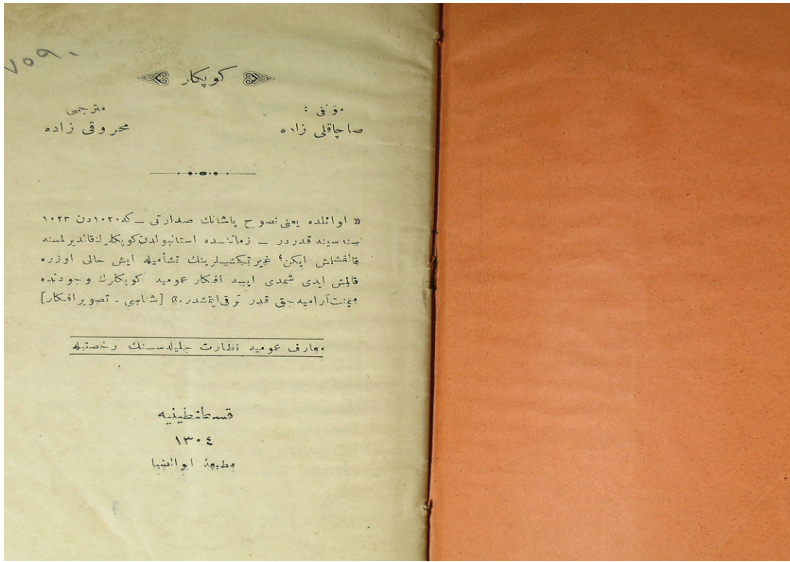 ٧٥٩٠
كوپكلر
مؤلفی :
صاچاقلی زاده
مترجمی
محروقی زاده
« اوائلده یعنی نصوح پاشانك صدارتی ــ كه ١٠٢٠ دن ١٠٢٣
سنه سینه قدردر ــ زماننده استانبولدن كوپكلرك قالدیرلمسنه
قالقشلش ایكن؛ غیرتكشلرینك تشأمیله ایش حالی اوزره
قالمش ایدی شمدی ایسه افكار عمومیه كوپكلرك وجودنده
میمنت آرامیه جق قدر ترقی ایتمشدر.» [شناسی ـ تصویر افكار]
معارف عمومیه نظارت جلیله سنك رخصتیله
قسطنطینیه
١٣٠٤
مطبعهٔ ابوالضیا